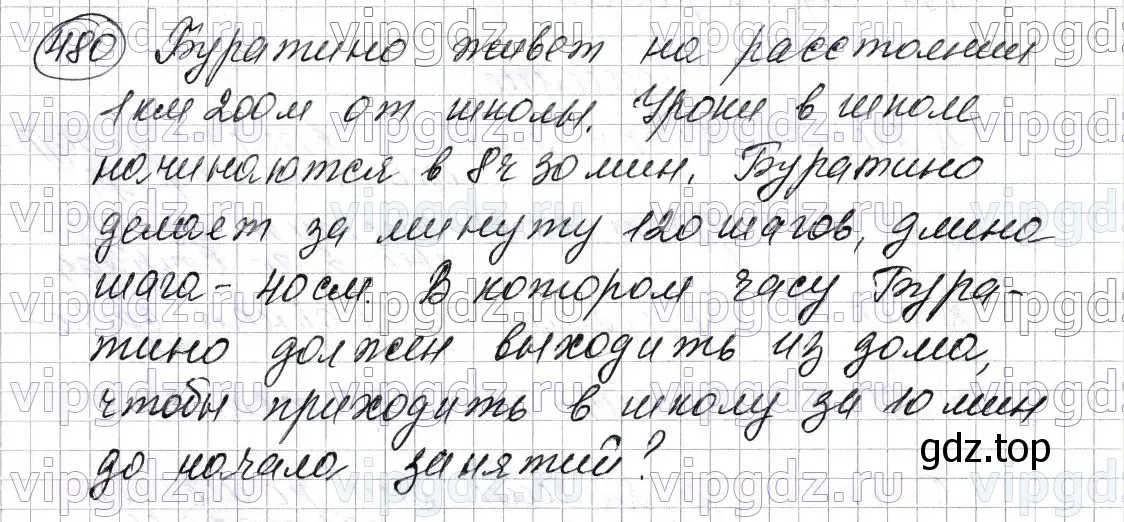 480 Буратино живет на расстоянии
1 км 200 м от школы. Уроки в школе
начинаются в 8 ч 30 мин. Буратино
делает за минуту 120 шагов, длина
шага - 40 см. В котором часу Бура-
тино должен выходить из дома,
чтобы приходить в школу за 10 мин
до начала занятий?
gdz.top
vipgdz.ru